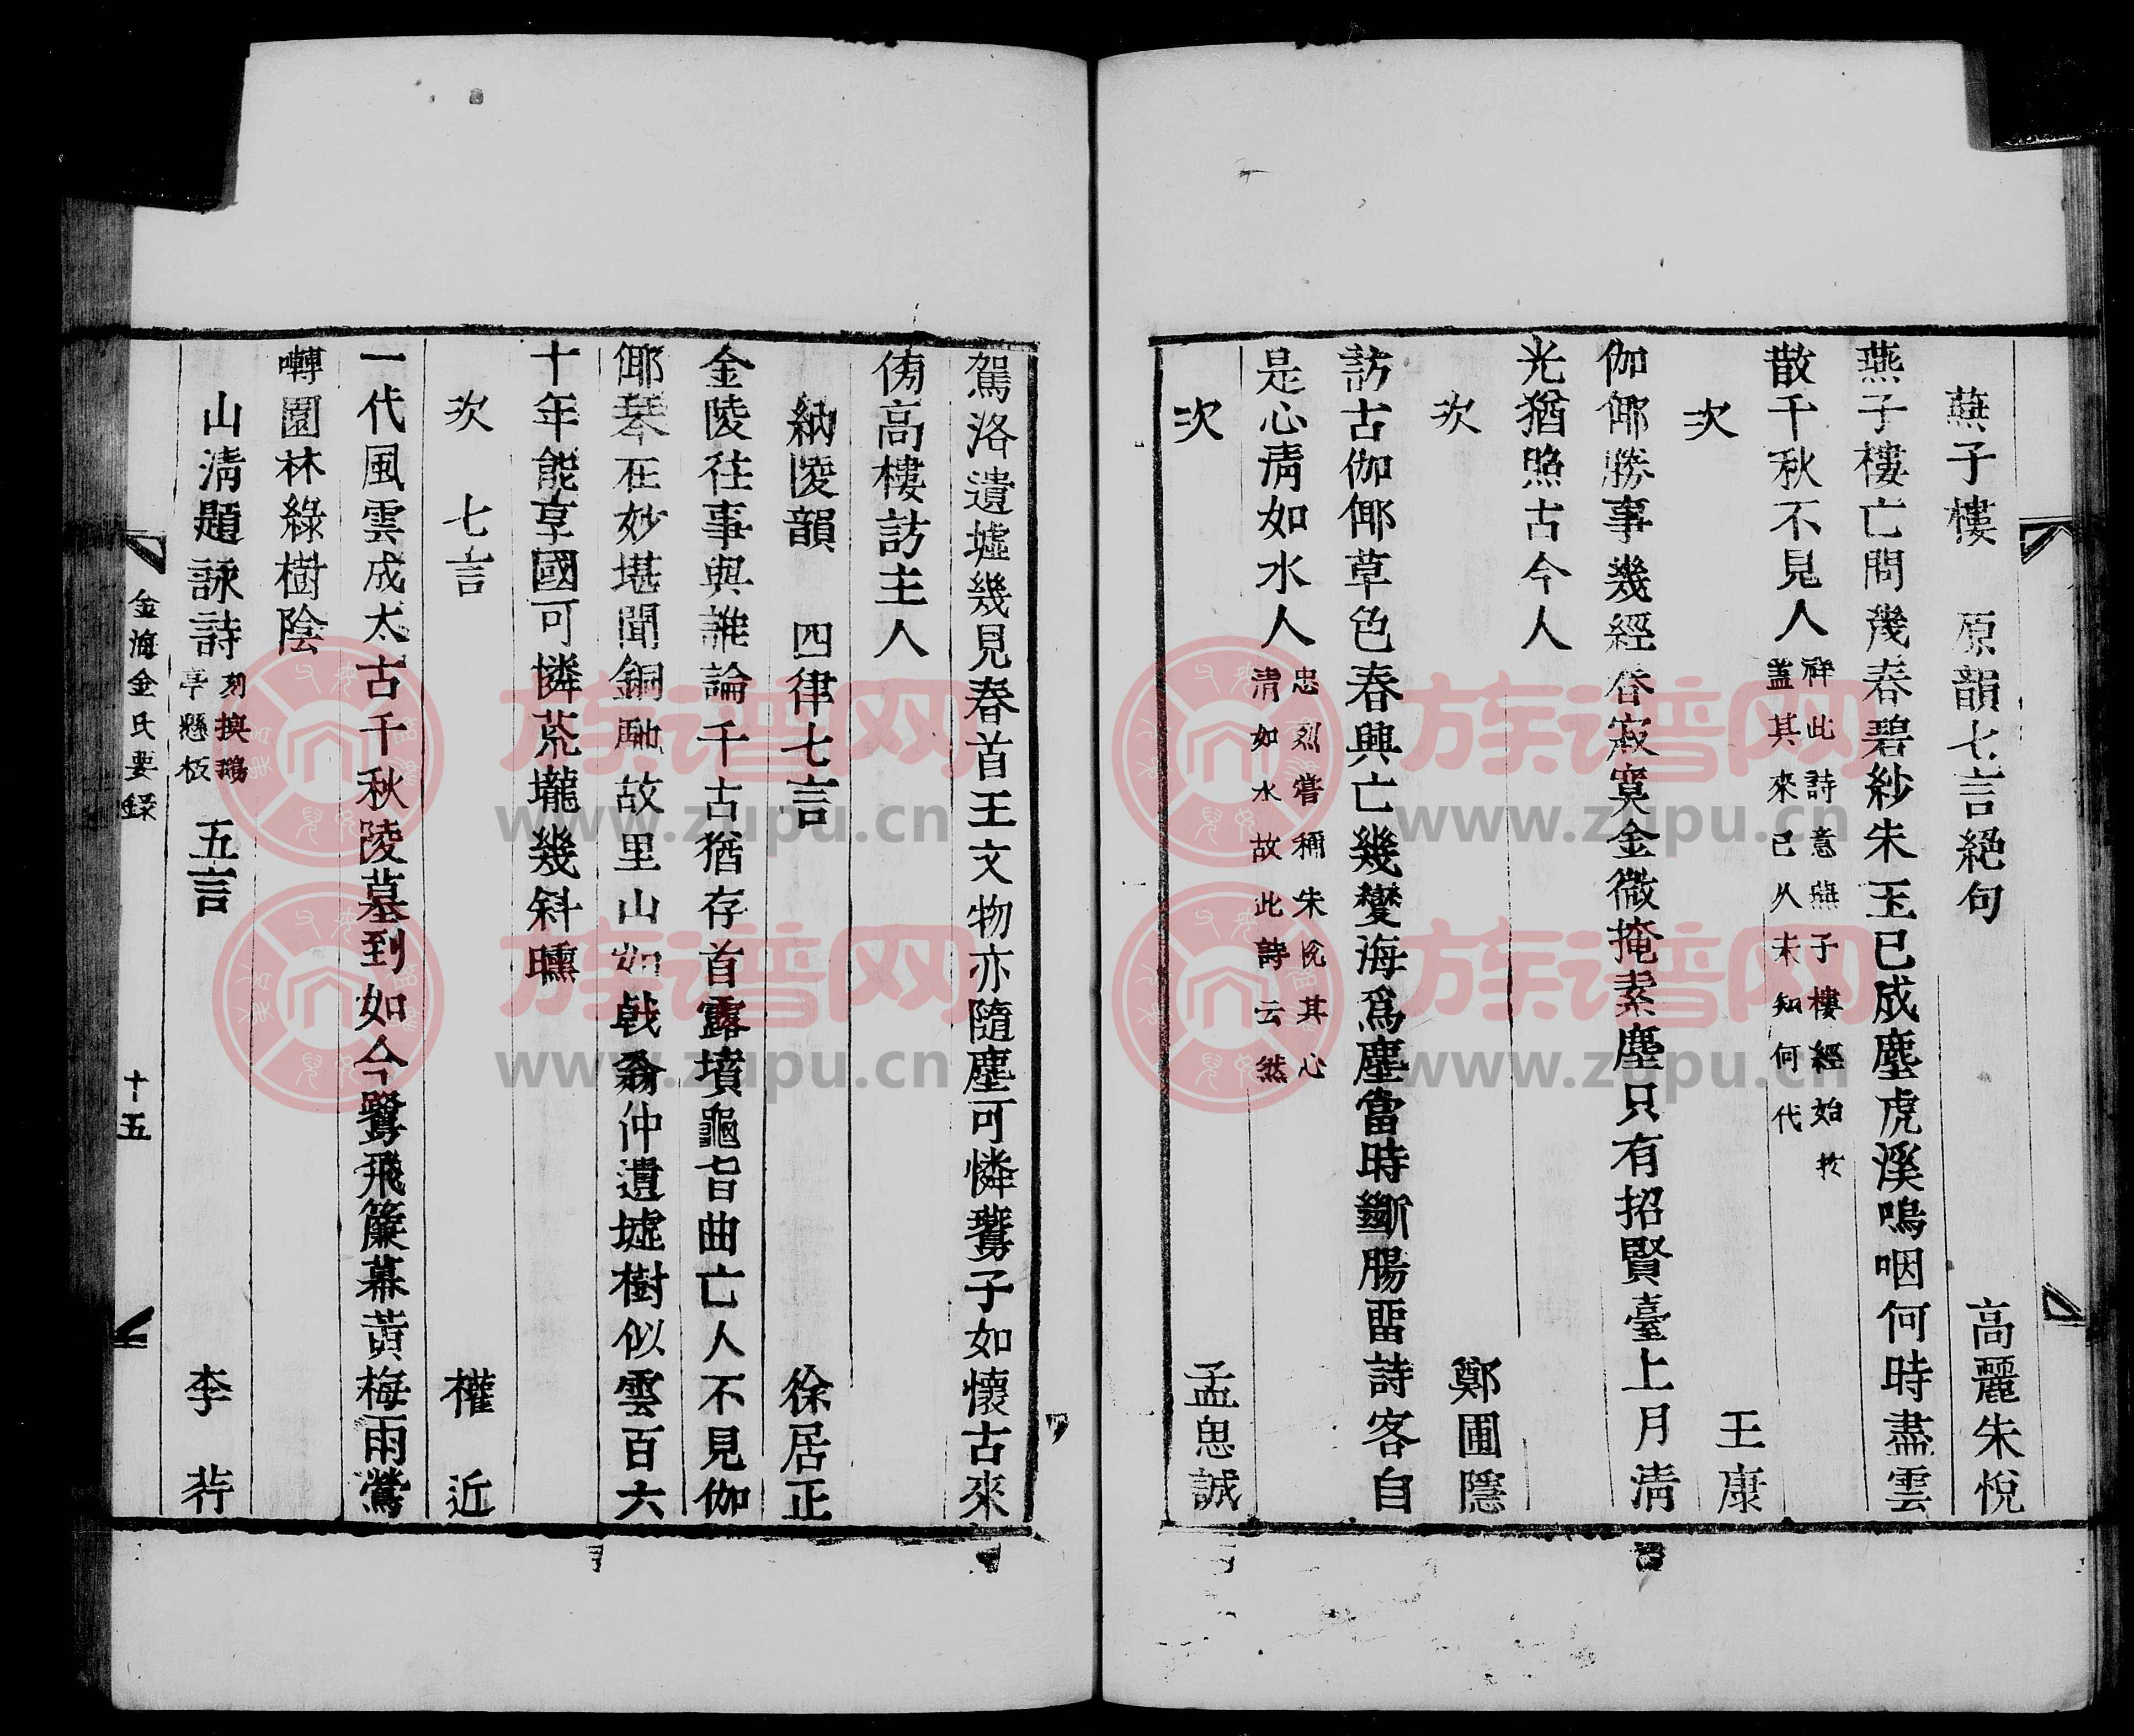 燕子樓　原韻七言絶句　高麗朱悅
燕子樓亡問幾春碧紗朱玉已成塵虎溪嗚咽何時盡雲
散千秋不見人
詳此詩意燕子樓經始於
盖其來已久未知何代
次　王康
伽倻勝事幾經春寂寞金徽掩素塵只有招賢臺上月清
光猶照古今人
次　鄭圃隱
訪古伽倻草色春興亡幾變海爲塵當時斷腸畱詩客自
是心清如水人
忠烈嘗稱朱悅其心
清如水故此詩云然
次　孟思誠
駕洛遺墟幾見春首王文物亦隨塵可憐鷰子如懷古來
傍高樓訪主人
納陵韻　四律七言　徐居正
金陵往事與誰論千古猶存首露墳龜旨曲亡人不見伽
倻琴在妙堪聞銅馳故里山如戟翁仲遺墟樹似雲百六
十年能享國可憐荒壠幾斜曛
次　七言　權近
一代風雲成太古千秋陵墓到如今鷺飛簾幕黃梅雨鶯
囀園林綠樹陰
山清題詠詩
刻換鵝
亭懸板
五言　李荇
金海金氏要錄
十五
族谱网
www.zupu.cn
族谱网
www.zupu.cn
族谱网
www.zupu.cn
族谱网
www.zupu.cn